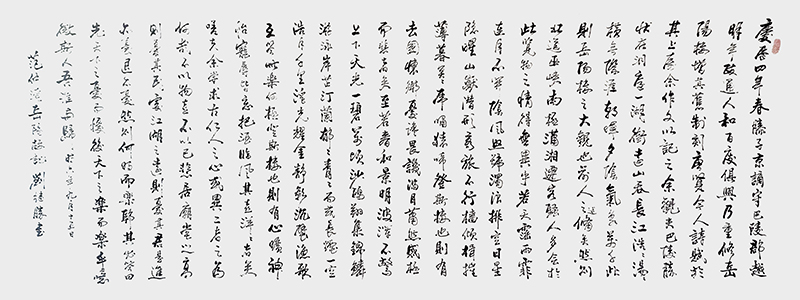 慶曆四年春滕子京謫守巴陵郡越
明年政通人和百廢俱興乃重修岳
陽樓增其舊制刻唐賢今人詩賦於
其上屬余作文以記之余觀夫巴陵勝
狀在洞庭一湖銜遠山吞長江浩浩湯湯
橫無際涯朝暉夕陰氣象萬千此
則岳陽樓之大觀也前人之述備矣然則
北通巫峽南極瀟湘遷客騷人多會於
此覽物之情得無異乎若夫霪雨霏霏
連月不開陰風怒號濁浪排空日星
隱曜山嶽潛形商旅不行檣傾楫摧
薄暮冥冥虎嘯猿啼登斯樓也則有
去國懷鄉憂讒畏譏滿目蕭然感極
而悲者矣至若春和景明波瀾不驚
上下天光一碧萬頃沙鷗翔集錦鱗
游泳岸芷汀蘭郁郁青青而或長煙一空
皓月千里浮光躍金靜影沉璧漁歌
互答此樂何極登斯樓也則有心曠神
怡寵辱皆忘把酒臨風其喜洋洋者矣
嗟夫余嘗求古仁人之心或異二者之為
何哉不以物喜不以己悲居廟堂之高
則憂其民處江湖之遠則憂其君是進
亦憂退亦憂然則何時而樂耶其必曰
先天下之憂而憂後天下之樂而樂乎噫
微斯人吾誰與歸時六年九月十五日
范仲淹岳陽樓記 劉 勝書